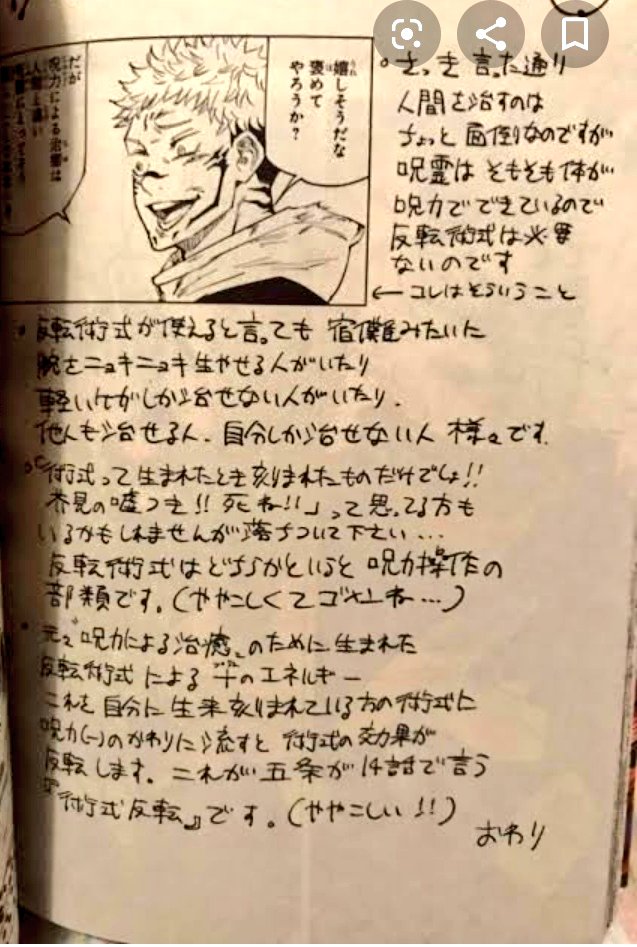 嬉しそうだな
褒めて
やろうか？
だが
呪力による治癒は
人間と違い
さっき言った通り
人間を治すのは
ちょっと面倒なのですが
呪霊はそもそも体が
呪力でできているので
反転術式は必要
ないのです
←コレはそういうこと
反転術式が使えると言っても 宿儺みたいに
腕をニョキニョキ生やせる人がいたり
軽いケガしか治せない人がいたり、
他人も治せる人、自分しか治せない人 様々です
「術式って生まれたとき刻まれたものだけでしょ!!
芥見の嘘つき!! 死ね!!」って思ってる方も
いるかもしれませんが落ちついて下さい…
反転術式はどちらかというと 呪力操作の
部類です。(ややこしくてゴメンね…)
元々"呪力による治癒"のために生まれた
反転術式による ＋のエネルギー
これを自分に生来刻まれている方の術式に
呪力(-)のかわりに流すと 術式の効果が
反転します。これが五条が14話で言う
『術式反転』です。(ややこしい!!)
おわり